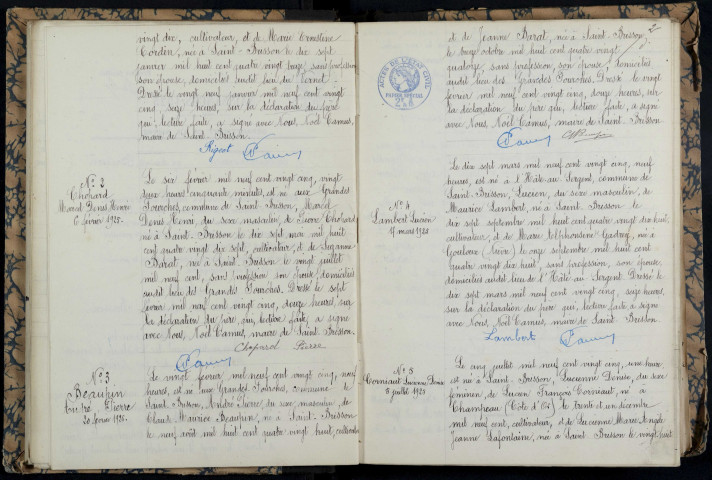 vingt dix, cultivateur, et de Marie Ernestine
Cordin, née à Saint-Brisson le dix sept
janvier mil huit cent quatre vingt treize, sans profession
son épouse, domiciliés audit lieu du Vernet.
Dressé le vingt neuf janvier mil neuf cent vingt
cinq, seize heures, sur la déclaration du père
qui, lecture faite, a signé avec Nous, Noël Camus,
maire de Saint-Brisson.
Rigeot Camus
N° 2
Chopard
Marcel Denis Henri
6 février 1925.
Le six février mil neuf cent vingt cinq, vingt
deux heures cinquante minutes, est né aux Grandes
Fourches, commune de Saint-Brisson, Marcel
Denis Henri du sexe masculin, de Pierre Chopard
né à Saint-Brisson le dix sept mai mil huit
cent quatre vingt dix sept, cultivateur, et de Suzanne
Barat, née à Saint-Brisson le vingt juillet
mil neuf cent, sans profession son épouse, domiciliés
audit lieu des Grandes Fourches. Dressé le sept
février mil neuf cent vingt cinq, douze heures, sur
la déclaration du père qui, lecture faite, a signé
avec Nous, Noël Camus, maire de Saint-Brisson.
Chopard Pierre
Camus
N° 3
Beaupin
André Pierre
20 février 1925.
Le vingt février mil neuf cent vingt cinq, neuf
heures, est né aux Grandes Fourches, commune de
Saint-Brisson, André Pierre, du sexe masculin, de
Claude Maurice Beaupin, né à Saint-Brisson
le neuf août mil huit cent quatre vingt huit, cultivateur
2
et de Jeanne Barat, née à Saint-Brisson
le treize octobre mil huit cent quatre vingt
quatorze, sans profession, son épouse, domiciliés
audit lieu des Grandes Fourches. Dressé le vingt
février mil neuf cent vingt cinq, douze heures, sur
la déclaration du père qui, lecture faite, a signé
avec Nous, Noël Camus, maire de Saint-Brisson.
ACTES DE L'ETAT CIVIL
PAPIER SPECIAL
Camus
N° 4
Lambert Lucien
17 mars 1925
Le dix sept mars mil neuf cent vingt cinq, neuf
heures, est né à l'Hâte au Sergent, commune de
Saint-Brisson, Lucien, du sexe masculin, de
Maurice Lambert, né à Saint-Brisson le
dix sept septembre mil huit cent quatre vingt dix huit,
cultivateur, et de Marie Alphonsine Gadrey, née à
Gouloux (Nièvre) le onze septembre mil huit cent
quatre vingt dix huit, sans profession, son épouse,
domiciliés audit lieu de l'Hâte au Sergent. Dressé le
dix sept mars mil neuf cent vingt cinq, seize heures,
sur la déclaration du père qui, lecture faite a signé
avec Nous, Noël Camus, maire de Saint-Brisson.
Lambert Camus
N° 5
Corniaut Lucienne Denise
5 juillet 1925
Le cinq juillet mil neuf cent vingt cinq, une heure
est née à Saint-Brisson, Lucienne Denise, du sexe
féminin, de Lucien François Corniaut, né à
Champeau (Côte d'Or) le trente et un décembre
mil neuf cent, cultivateur, et de Lucienne Marie Angèle
Jeanne Lafontaine, née à Saint-Brisson le vingt huit